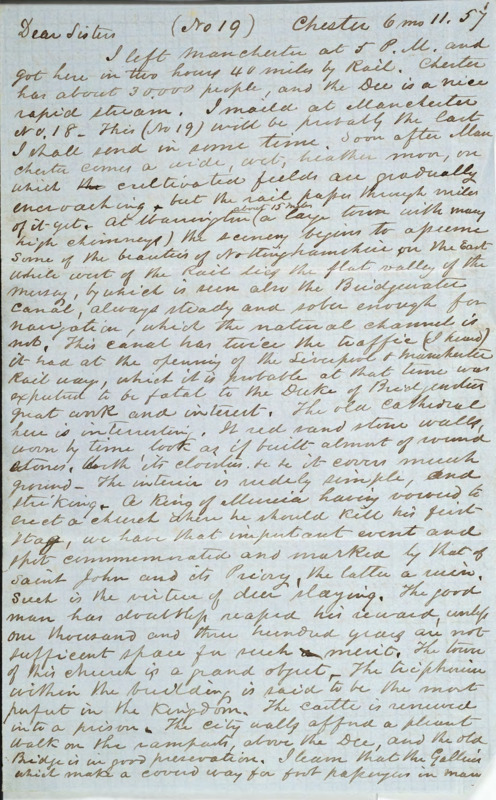 Dear Sisters (No 19) Chester 6 mo 11. 57
I left Manchester at 5 P.M. and
got here in two hours 40 miles by Rail. Chester
has about 30000 people, and the Dee is a nice
rapid stream. I maild at Manchester
No, 18 - This (No 19) will be probably the last
I shall send in some time. Soon after Man
chester comes a wide, wet, heather moor, on
which the cultivated fields are gradually
encroaching, but the rail passes through miles
of it yet. At Warrington (a large town with many
high chimneys) the scenery begins to assume
some of the beauties of Nottinghamshire on the East
while west of the Rail lies the flat valley of the
Mersey, by which is seen also the Bridgewater
Canal, always steady and sober enough for
navigation, which the natural channel is
not. This canal has twice the traffic (I heard)
it had at the opening of the Liverpool & Manchester
Rail way, which it is probable at that time was
expected to be fatal to the Duke of Bridgewaters
great work and interest. The old Cathedral
here is interesting. It red sand stone walls,
worn by time look as if built almost of round
stones. With its cloisters &c &c it covers much
ground - The interior is rudely simple, and
striking. A King of Mercia having vowed to
erect a church where he should kill his first
Stag, we have that important event and
spot commemorated and marked by that of
Saint John and its Priory, the latter a ruin.
Such is the virtue of deer slaying. The good
man has doubtless reaped his reward, unless
one thousand and three hundred years are not
sufficent space for such a merit. The town
of this church is a grand object. The
within the building is said to be the most
perfect in the Kingdom. The castle is renewed
into a prison. The city walls afford a pleasant
walk on the ramparts, above the Dee, and the old
Bridge is in good preservation. I learn that the Galleries
which make a coverd way for foot passengers in man